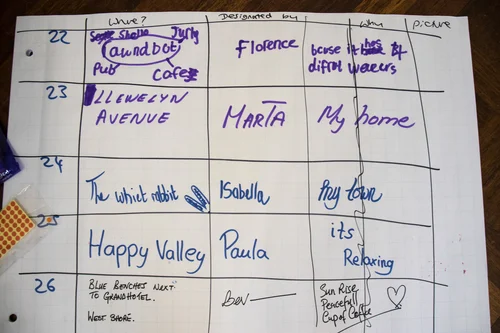 Where? Designated by Why picture
22 Shella Jurly
aundbot Florence bcuse it hes 4
Pub Cafes difrnt waeeers
23 LLEWELYN
AVENUE MARTA My home
24 The whiet rabbit Isabella my town
25 Happy Valley Paula its
Relaxing
26 BLUE BENCHES NEXT
TO GRAND HOTEL. Bev Sun Rise
Peacefull
WEST SHORE. Cup of Coffee